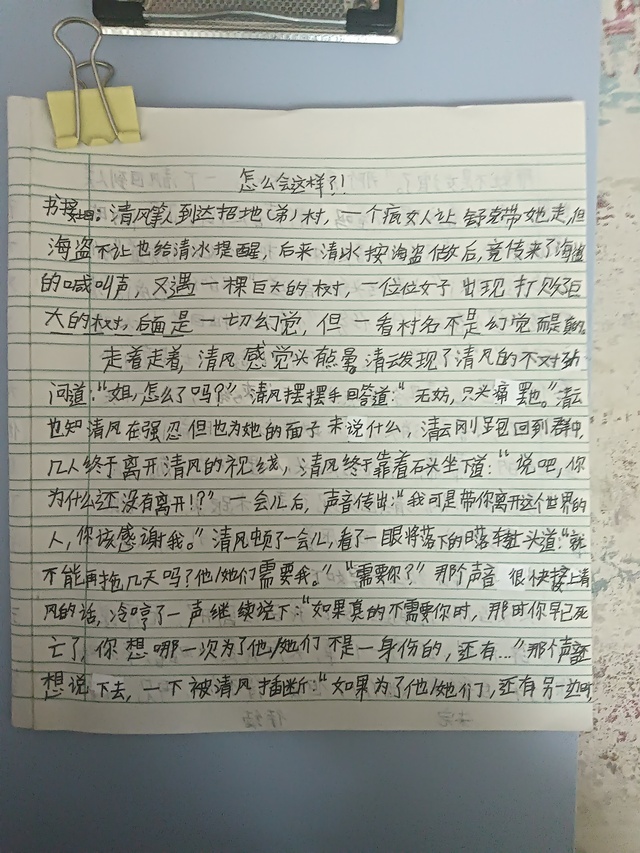 怎么会这样了!
书接上回：清风等人到达招地(弟)村，一个疯女人让舒克带她走，但
海盗不让也给清冰提醒，后来清冰按海盗做后，竟传来了海盗
的喊叫声，又遇一棵巨大的树，一位位女子出现打败了巨
大的树，后面是一切幻觉，但一看村名不是幻觉
走着走着，清风感觉头有点晕，清云发现了清风的不对劲
问道：“姐，怎么了吗？”清风摆摆手回答道：“无妨，只头痛罢也。”清云
也知清风在强忍但也为她的面子未说什么，清云刚回到群中，
几人终于离开清风的视线，清风终于靠着石头坐下道：“说吧，你
为什么还没有离开!？”一会儿后，声音传出：“我可是带你离开这个世界的
人，你该感谢我。”清风顿了一会儿，看了一眼将落下的日落转头道：“就
不能再拖几天吗？他/她们需要我。”“需要你？”那个声音很快接上清
风的话，冷哼了一声继续说下：“如果真的不需要你时，那时你早已死
亡了，你想哪一次为了他/她们不是一身伤的，还有...”那个声音还
想说下去，一下被清风打断：“如果为了他/她们，还有另一边时